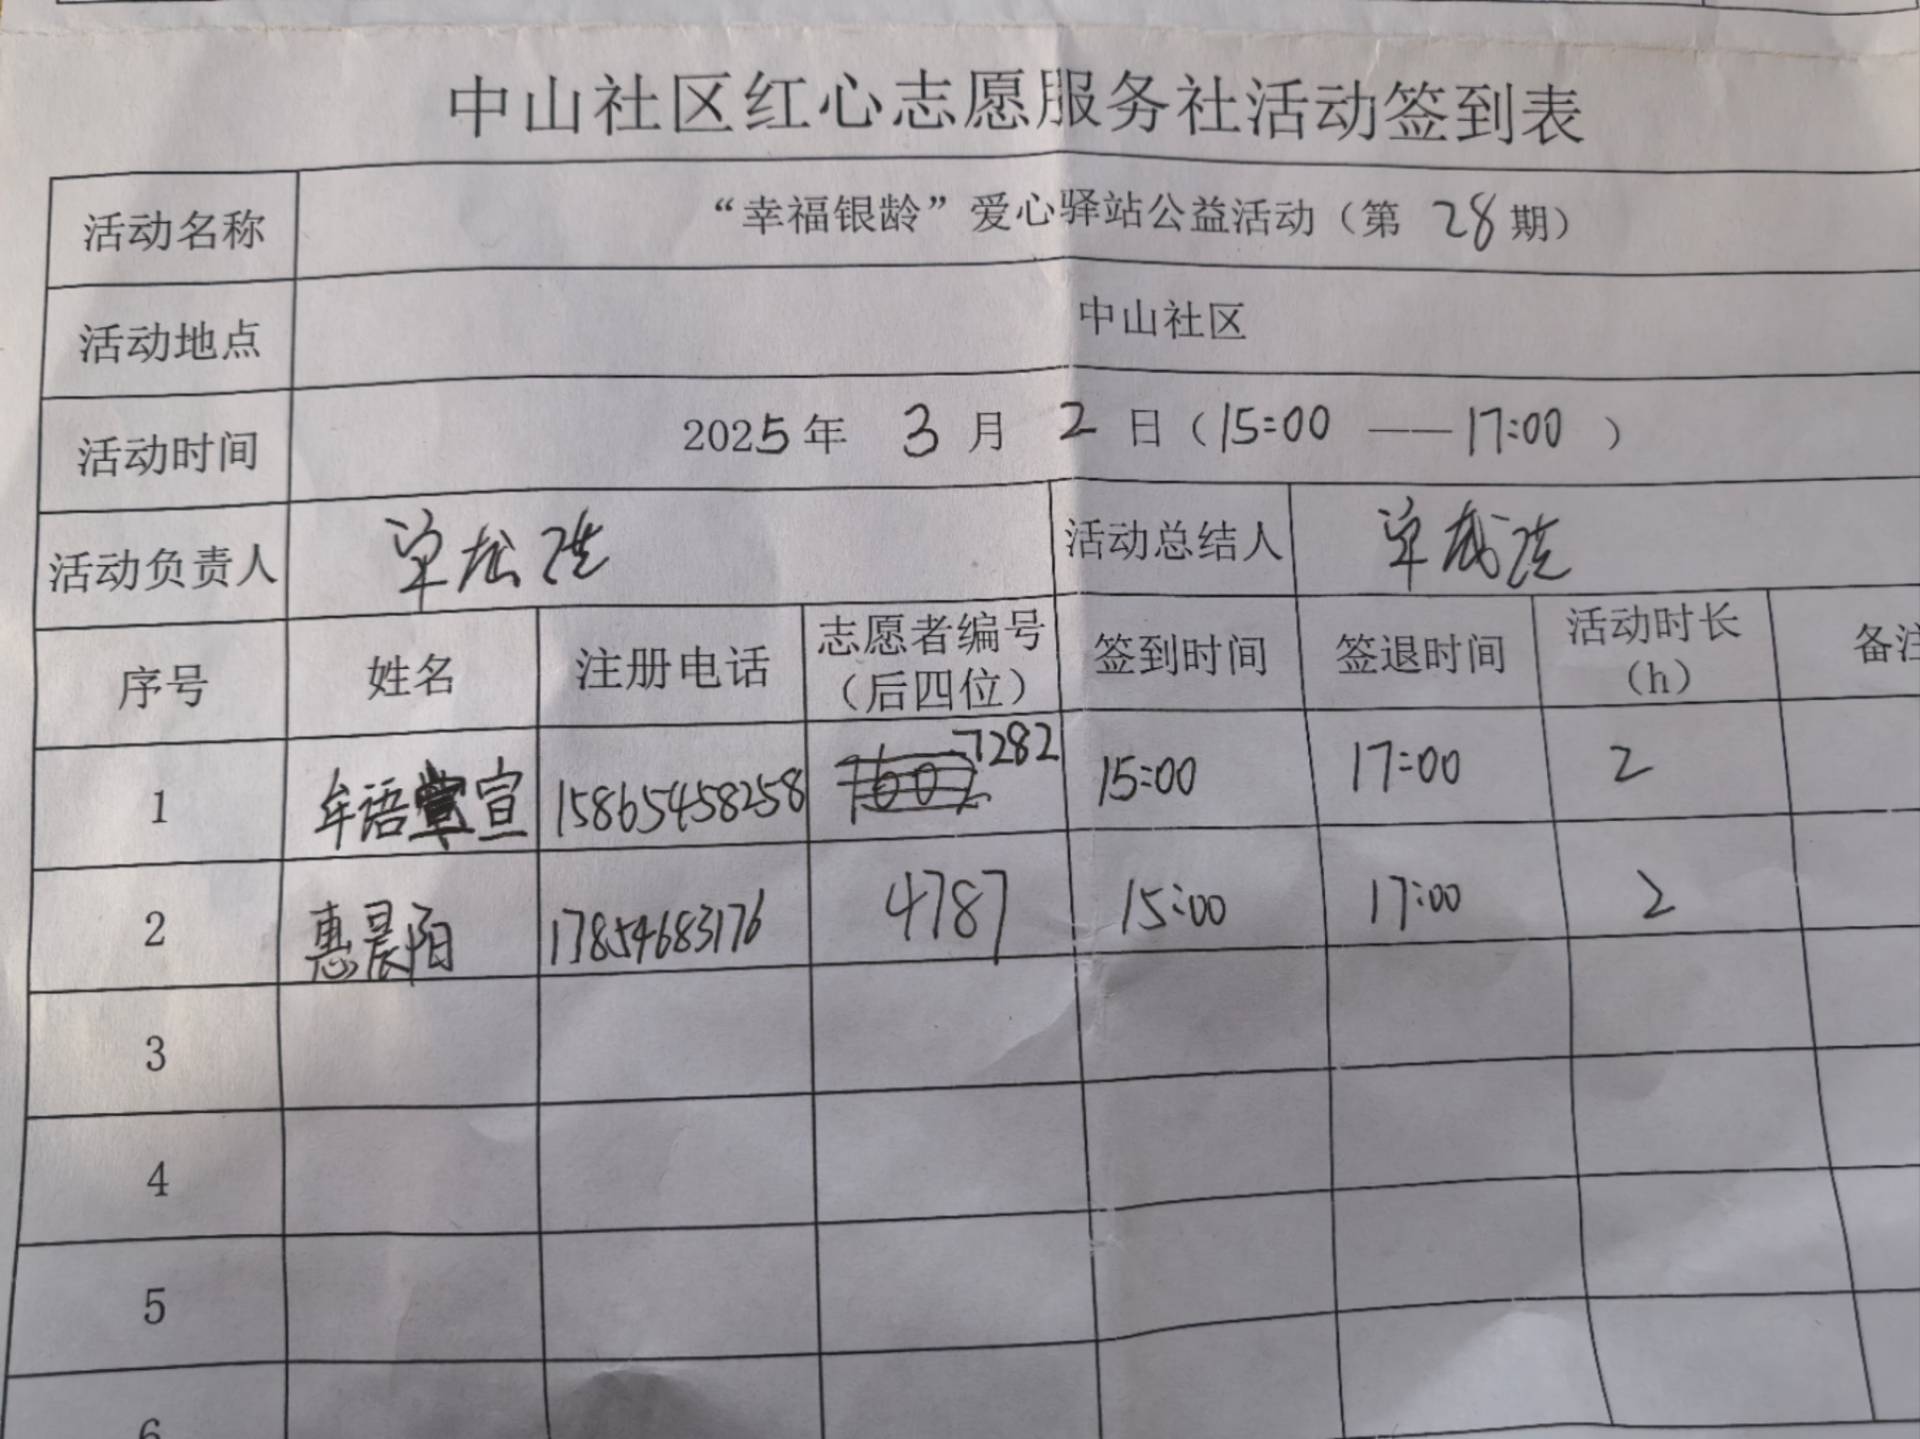 中山社区红心志愿服务社活动签到表
活动名称 “幸福银龄”爱心驿站公益活动（第 28 期）
活动地点 中山社区
活动时间 2025年 3 月 2 日（15:00 ——17:00 ）
活动负责人 单 活动总结人 单
序号 姓名 注册电话 志愿者编号（后四位） 签到时间 签退时间 活动时长（h） 备注
1 牟语宣 15865458258 7282 15:00 17:00 2
2 惠晨阳 17854683176 4787 15:00 17:00 2
3
4
5
6